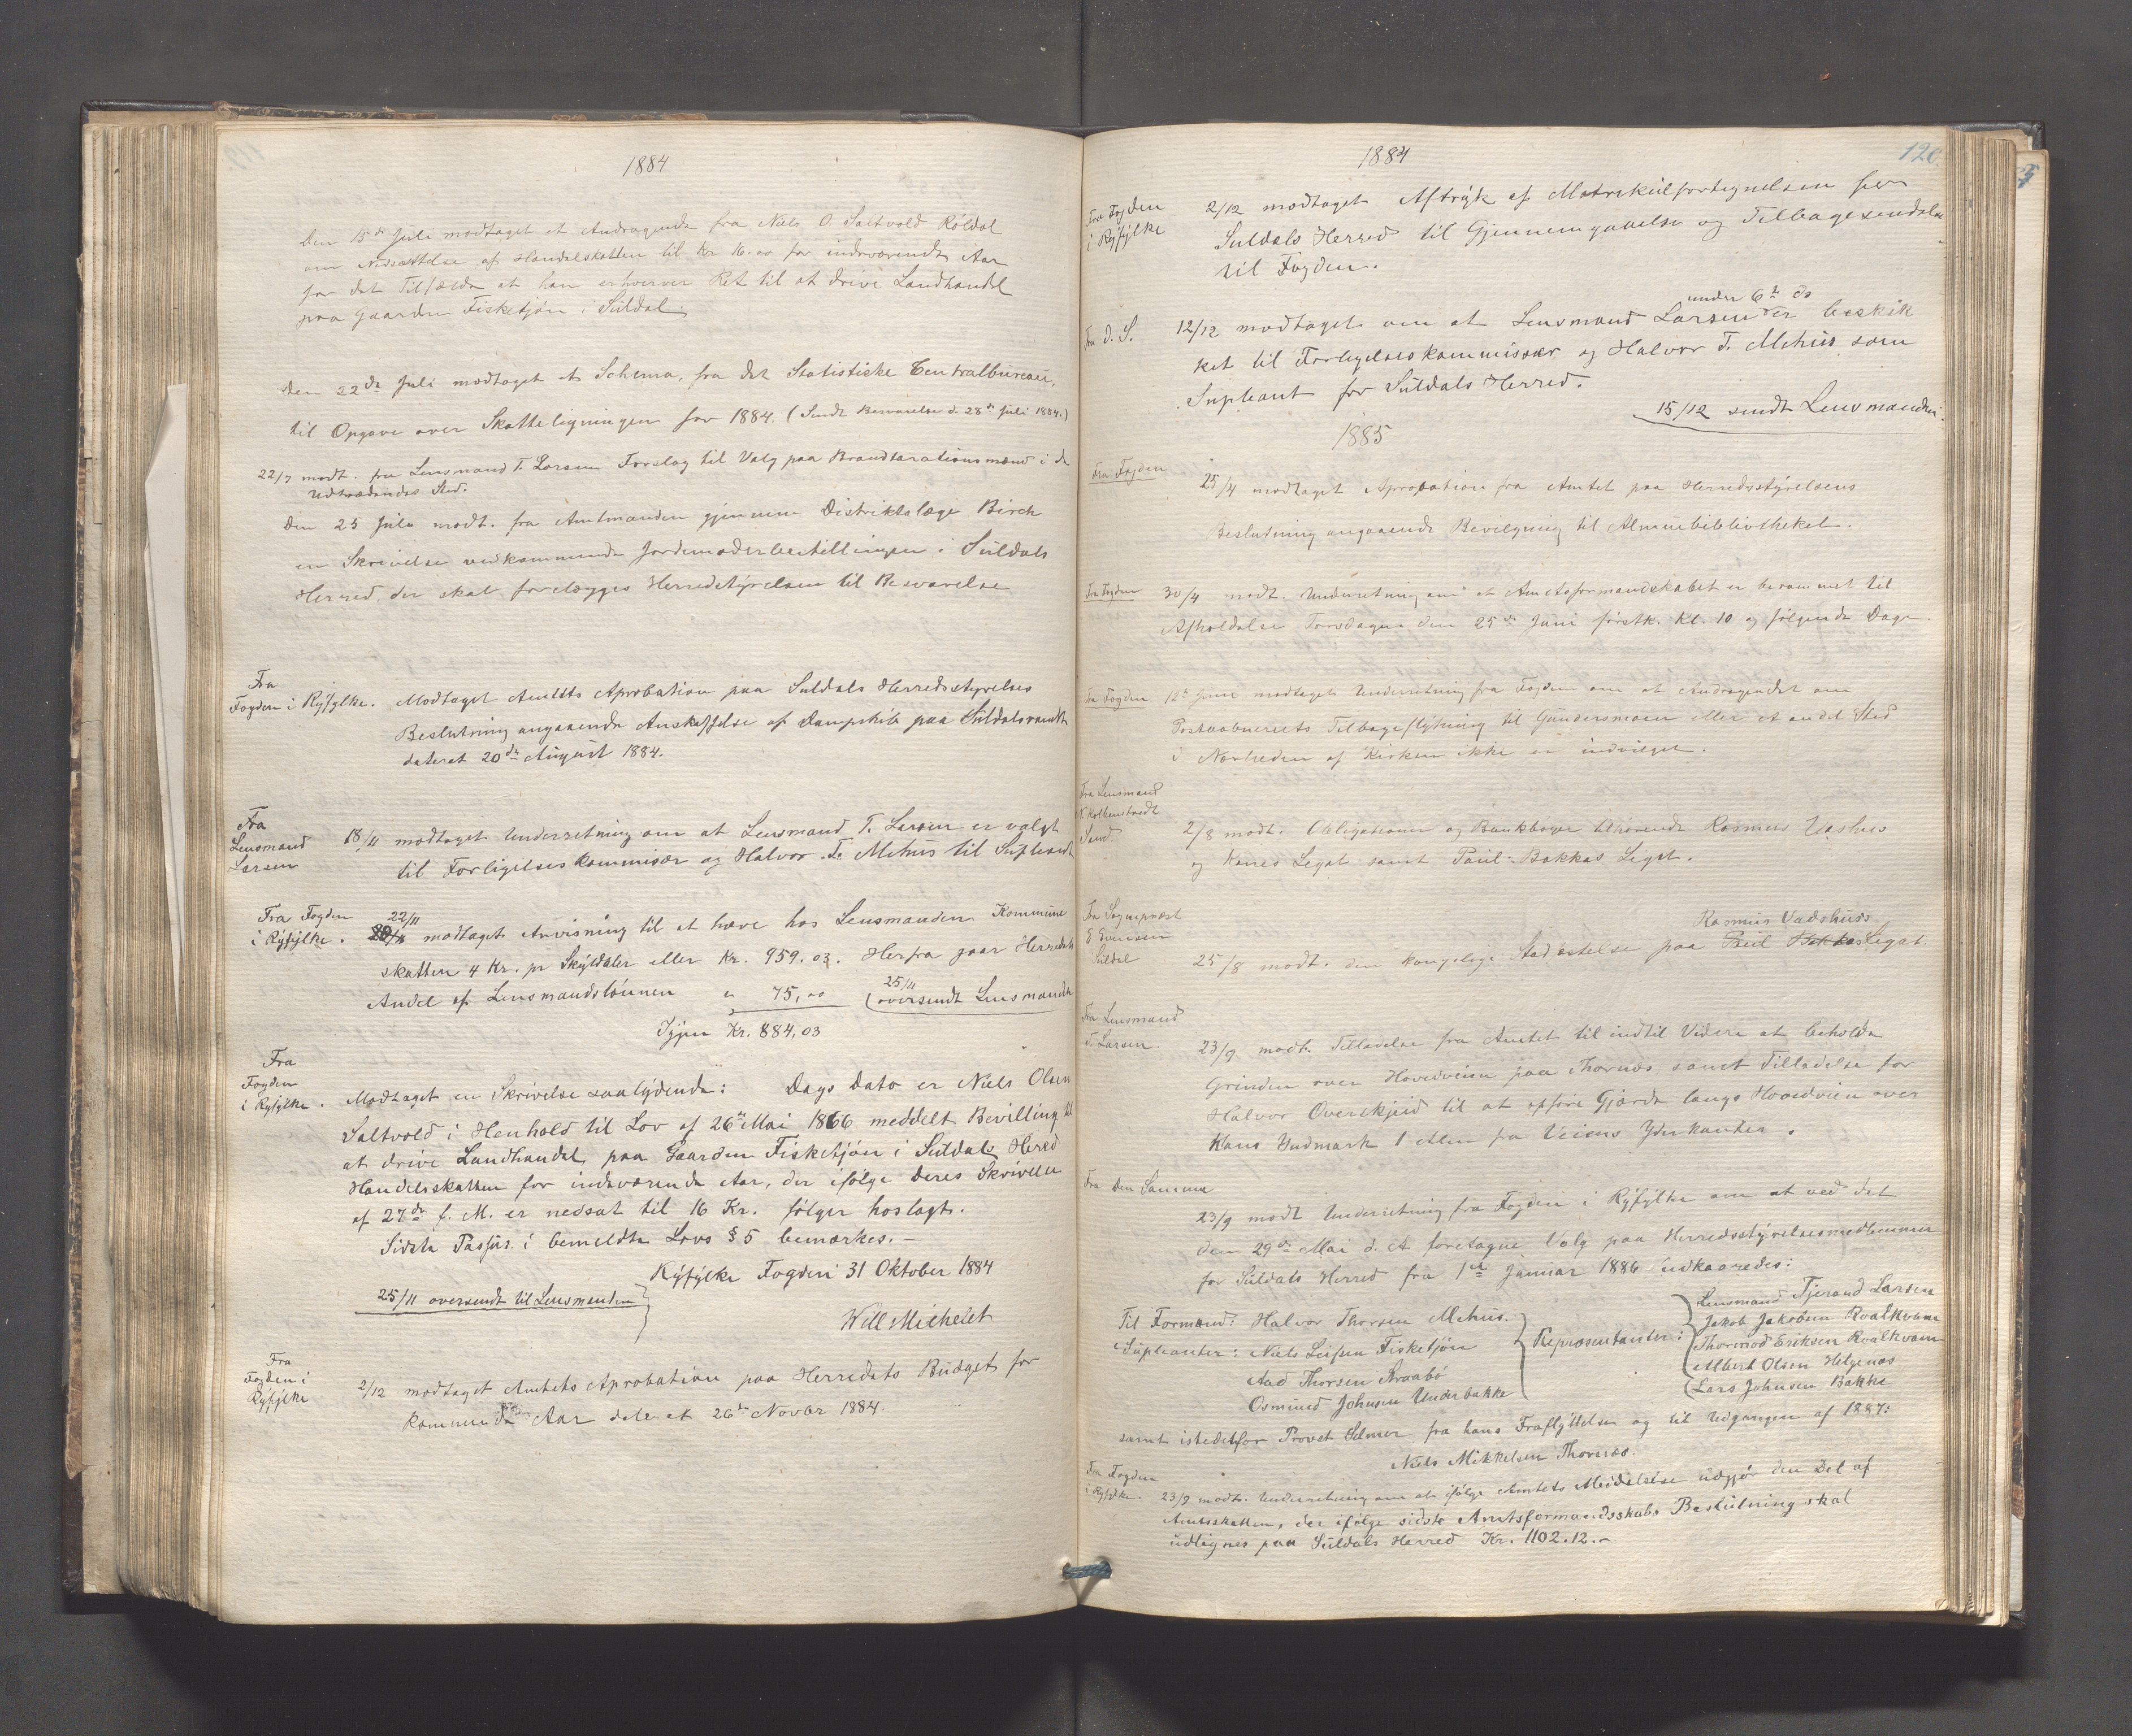 1884
Den 15de Juli modtaget et Andragende fra Niels O. Saltvold Röldal
om Nedsættelse af Handelsskatten til Kr 16.00 for indeværende Aar
for det Tilfælde at han erhverver Ret til at drive Landhandel
paa Gaarden Fisketjön i Suldal.
Den 22de Juli modtaget et Schema, fra det Statistiske Centralbureau,
til Opgave over Skatteligningen for 1884. (Sendt Besvarelse d. 28de Juli 1884.)
22/7 modt. fra Lensmand T. Larsen Forslag til Valg paa Brandtaxationsmænd i de
Udtrædendes Sted.
Den 25 Juli modt. fra Amtmanden gjennem Distriktslæge Birch
en Skrivelse vedkommende Jordemoderbestillingen i Suldals
Herred, der skal forelægges Herredstyrelsen til Besvarelse
Fra
Fogden i Ryfylke.
Modtaget Amtets Aprobation paa Suldals Herredsstyrelses
Beslutning angaaende Anskaffelse af Dampskib paa Suldalsvandet
dateret 20de August 1884.
Fra
Lensmand
Larsen
18/11 modtaget Underretning om at Lensmand T. Larsen er valgt
til Forligelseskommisær og Halvor T. Mehus til Supleant
Fra Fogden
i Ryfylke.
22/11
modtaget Anvisning til at hæve hos Lensmanden Kommune
skatten 4 Kr. pr Skyldaler eller Kr. 959.03. Herfra gaar Herredets
Andel af Lensmandslönnen " 75,00 (25/11 oversendt Lensmanden
Igjen Kr. 884,03
Fra
Fogden
i Ryfylke.
Modtaget en Skrivelse saalydende: Dags Dato er Niels Olsen
Saltvold i Henhold til Lov af 26de Mai 1866 meddelt Bevilling til
at drive Landhandel paa Gaarden Fisketjön i Suldals Herred
Handelsskatten for indeværende Aar, der ifølge Deres Skrivelse
af 27de f. M. er nedsat til 16 Kr. følger hoslagt.
Sidste Passus i bemeldte Lovs § 5 bemærkes. –
Ryfylke Fogderi 31 Oktober 1884
25/11 oversendt til Lensmanden
Will Michelet
Fra
Fogden i
Ryfylke
2/12 modtaget Amtets Aprobation paa Herredets Budget for
kommende Aar dateret 26de Novbr 1884.
1884
120
Fra Fogden
i Ryfylke
2/12 modtaget Aftryk af Matrikulfortegnelsen for
Suldals Herred til Gjennemgaaelse og Tilbagesendelse
til Fogden.
Fra D. S.
under 6te ds
12/12 modtaget om at Lensmand Larsen er beskik
ket til Forligelseskommissær og Halvor T. Mehus som
Supleant for Suldals Herred.
15/12 sendt Lensmanden.
1885
Fra Fogden
25/4 modtaget Aprobation fra Amtet paa Herredsstyrelsens
Beslutning angaaende Bevilgning til Almuebibliotheket.
Fra Fogden
30/4 modt. Underretning om at Amtsformandskabet er berammet til
Afholdelse Torsdagen den 25de Juni förstk. Kl. 10 og følgende Dage.
Fra Fogden
12te Juni modtaget Underretning fra Fogden om at Andragendet om
Postaabneriets Tilbageflytning til Gundersmoen eller et andet Sted
i Nærheden af Kirken ikke er indvilget.
Fra Lensmand
Sand.
2/8 modt. Obligationer og Bankbøger tilhørende Rasmus Vashus
og Kones Legat samt Paul Bakkas Legat.
Fra Sogneprest
Suldal
Rasmus Vadshuss
25/8 modt. den kongelige Stadfestelse paa Paul Bakkas Legat.
Fra Lensmand
T. Larsen.
23/9 modt. Tilladelse fra Amtet til indtil Videre at beholde
Grinden over Hovedveien paa Thornæs samt Tilladelse for
Halvor Overskjeid til at opføre Gjærde langs Hovedveien over
Hans Indmark 1 Alen fra Veiens Yderkanter.
Fra Den Samme
23/9 modt Underretning fra Fogden i Ryfylke om at ved det
den 29de Mai d. A. foretagne Valg paa Herredsstyrelsesmedlemmer
for Suldals Herred fra 1ste Januar 1886 udkaaredes:
Til Formænd: Halvor Thorsen Mehus.
Supleanter: Niels Leifsen Fisketjön
Aad Thorsen Straabö
Osmund Johnsen Underbakke
Repræsentanter:
Lensmand Tjerand Larsen
Jakob Jakobsen Roalkvam
Thormod Eriksen Roalkvam
Albert Olsen Helgenæs
Lars Johnsen Bakke
samt istedetfor Provst Selmer fra hans Fraflyttelse og til Udgangen af 1887:
Niels Mikkelsen Thornæs.
Fra Fogden
i Ryfylke.
23/9 modt. Underretning om at ifølge Amtets Meddelelse udgjør den Del af
Amtsskatten, der ifølge sidste Amtsformandsskabs Beslutning skal
udlignes paa Suldals Herred Kr. 1102.12.–